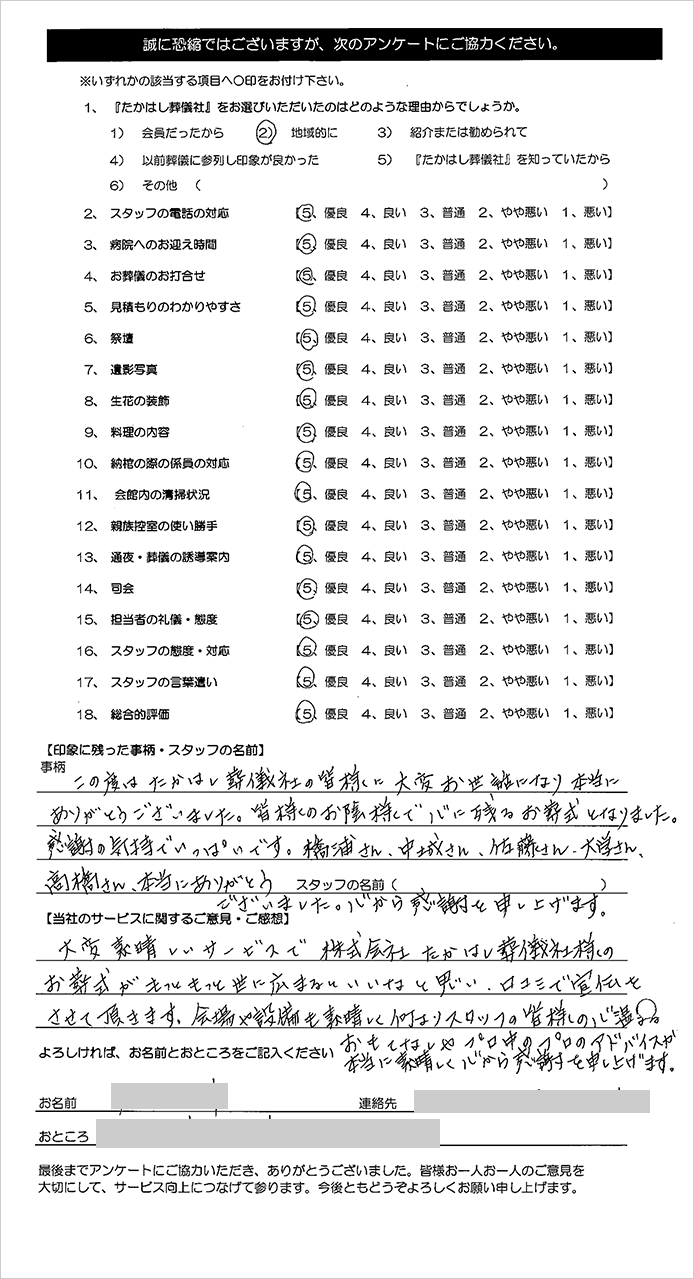 誠に恐縮ではございますが、次のアンケートにご協力ください。
※いずれかの該当する項目へ〇印をお付け下さい。
1、 『たかはし葬儀社』をお選びいただいたのはどのような理由からでしょうか。
1） 会員だったから 2） 地域的に 3） 紹介または勧められて
4） 以前葬儀に参列し印象が良かった 5） 『たかはし葬儀社』を知っていたから
6） その他 （ ）
2、 スタッフの電話の対応 【5、優良 4、良い 3、普通 2、やや悪い 1、悪い】
3、 病院へのお迎え時間 【5、優良 4、良い 3、普通 2、やや悪い 1、悪い】
4、 お葬儀のお打合せ 【5、優良 4、良い 3、普通 2、やや悪い 1、悪い】
5、 見積もりのわかりやすさ 【5、優良 4、良い 3、普通 2、やや悪い 1、悪い】
6、 祭壇 【5、優良 4、良い 3、普通 2、やや悪い 1、悪い】
7、 遺影写真 【5、優良 4、良い 3、普通 2、やや悪い 1、悪い】
8、 生花の装飾 【5、優良 4、良い 3、普通 2、やや悪い 1、悪い】
9、 料理の内容 【5、優良 4、良い 3、普通 2、やや悪い 1、悪い】
10、 納棺の際の係員の対応 【5、優良 4、良い 3、普通 2、やや悪い 1、悪い】
11、 会館内の清掃状況 【5、優良 4、良い 3、普通 2、やや悪い 1、悪い】
12、 親族控室の使い勝手 【5、優良 4、良い 3、普通 2、やや悪い 1、悪い】
13、 通夜・葬儀の誘導案内 【5、優良 4、良い 3、普通 2、やや悪い 1、悪い】
14、 司会 【5、優良 4、良い 3、普通 2、やや悪い 1、悪い】
15、 担当者の礼儀・態度 【5、優良 4、良い 3、普通 2、やや悪い 1、悪い】
16、 スタッフの態度・対応 【5、優良 4、良い 3、普通 2、やや悪い 1、悪い】
17、 スタッフの言葉遣い 【5、優良 4、良い 3、普通 2、やや悪い 1、悪い】
18、 総合的評価 【5、優良 4、良い 3、普通 2、やや悪い 1、悪い】
【印象に残った事柄・スタッフの名前】
事柄
この度は たかはし葬儀社の皆様に 大変お世話になり 本当に
ありがとうございました。皆様のお陰様で心に残るお葬式となりました。
感謝の気持でいっぱいです。橋浦さん、中城さん、佐藤さん、大学さん、
高橋さん、本当にありがとう スタッフの名前（ ）
ございました。心から感謝を申し上げます。
【当社のサービスに関するご意見・ご感想】
大変素晴しいサービスで 株式会社 たかはし葬儀社様の
お葬式がもっともっと世に広まるといいなと思い、口コミで宣伝を
させて頂きます。会場や設備も素晴しく何よりスタッフの皆様の心温まる
おもてなしやプロ中のプロのアドバイスが
本当に素晴しく心から感謝を申し上げます。
よろしければ、お名前とおところをご記入ください
お名前 連絡先
おところ
最後までアンケートにご協力いただき、ありがとうございました。皆様お一人お一人のご意見を
大切にして、サービス向上につなげて参ります。今後ともどうぞよろしくお願い申し上げます。